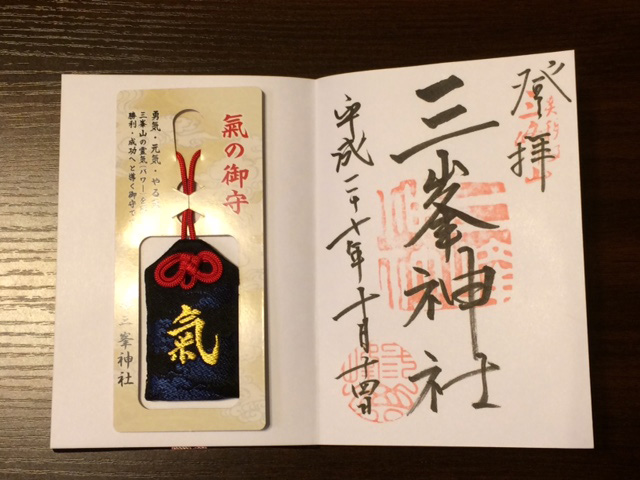 登拝
三峯神社
平成二十七年十月二十四日
氣の御守
勇気・元気・やる
三峯山の霊気(パワー)を
勝利・成功へと導く御守で
氣
三峯神社